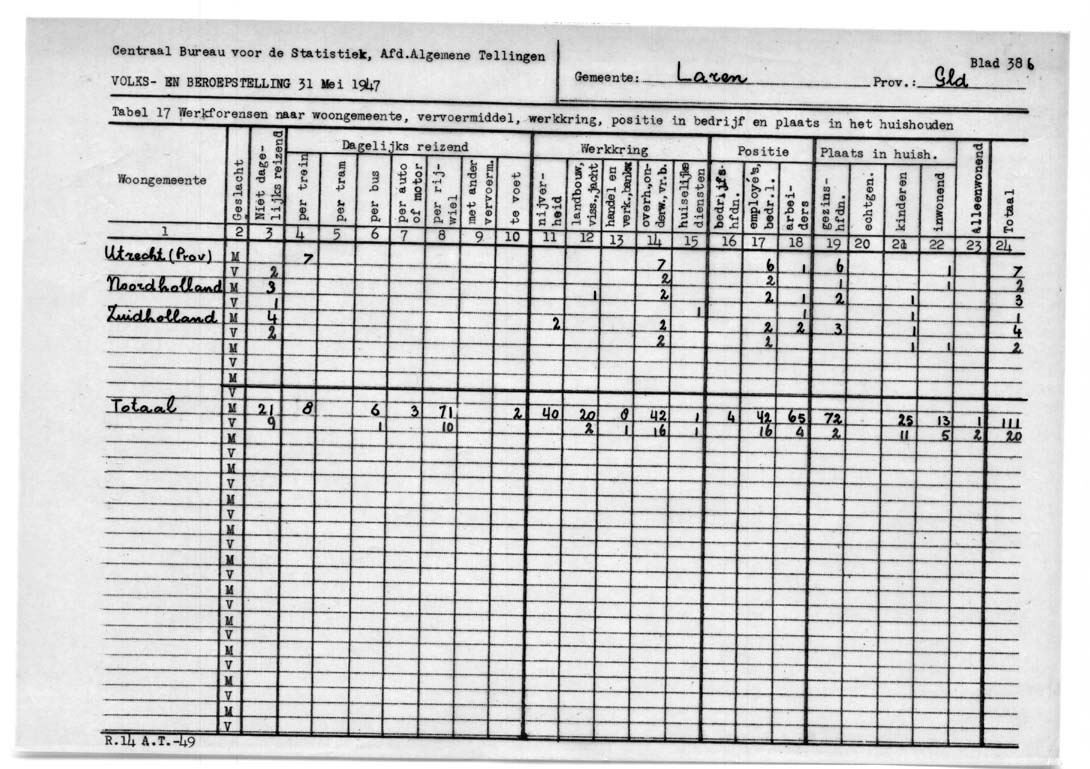 Centraal Bureau voor de Statistiek, Afd.Algemene Tellingen
VOLKS- EN BEROEPSTELLING 31 Mei 1947
Gemeente: Laren Prov.: Gld Blad 386
Tabel 17 Werkforensen naar woongemeente, vervoermiddel, werkkring, positie in bedrijf en plaats in het huishouden
Woongemeente Geslacht Niet dage-lijks reizend Dagelijks reizend Werkkring Positie Plaats in huish. Alleenwonend Totaal
per trein per tram per bus per auto of motor per rij-wiel met ander vervoerm. te voet nijver-heid landbouw, viss.,jacht handel en verk.,bankw. overh.,on-derw.,vr.b. huiselijke diensten bedrijfs-hfdn. employé's, bedr.l. arbei-ders gezins-hfdn. echtgen. kinderen inwonend
1 2 3 4 5 6 7 8 9 10 11 12 13 14 15 16 17 18 19 20 21 22 23 24
Utrecht (Prov) M 7 7 6 1 6 1 7
V 2 2 2 1 1 2
Noordholland M 3 1 2 2 1 2 1 3
V 1 1 1 1 1
Zuidholland M 4 2 2 2 2 3 1 4
V 2 2 2 1 1 2
M
V
M
V
Totaal M 21 8 6 3 71 2 40 20 8 42 1 4 42 65 72 25 13 1 111
V 9 1 10 2 1 16 1 16 4 2 11 5 2 20
M
V
M
V
M
V
M
V
M
V
M
V
M
V
M
V
M
V
M
V
R.14 A.T.-49